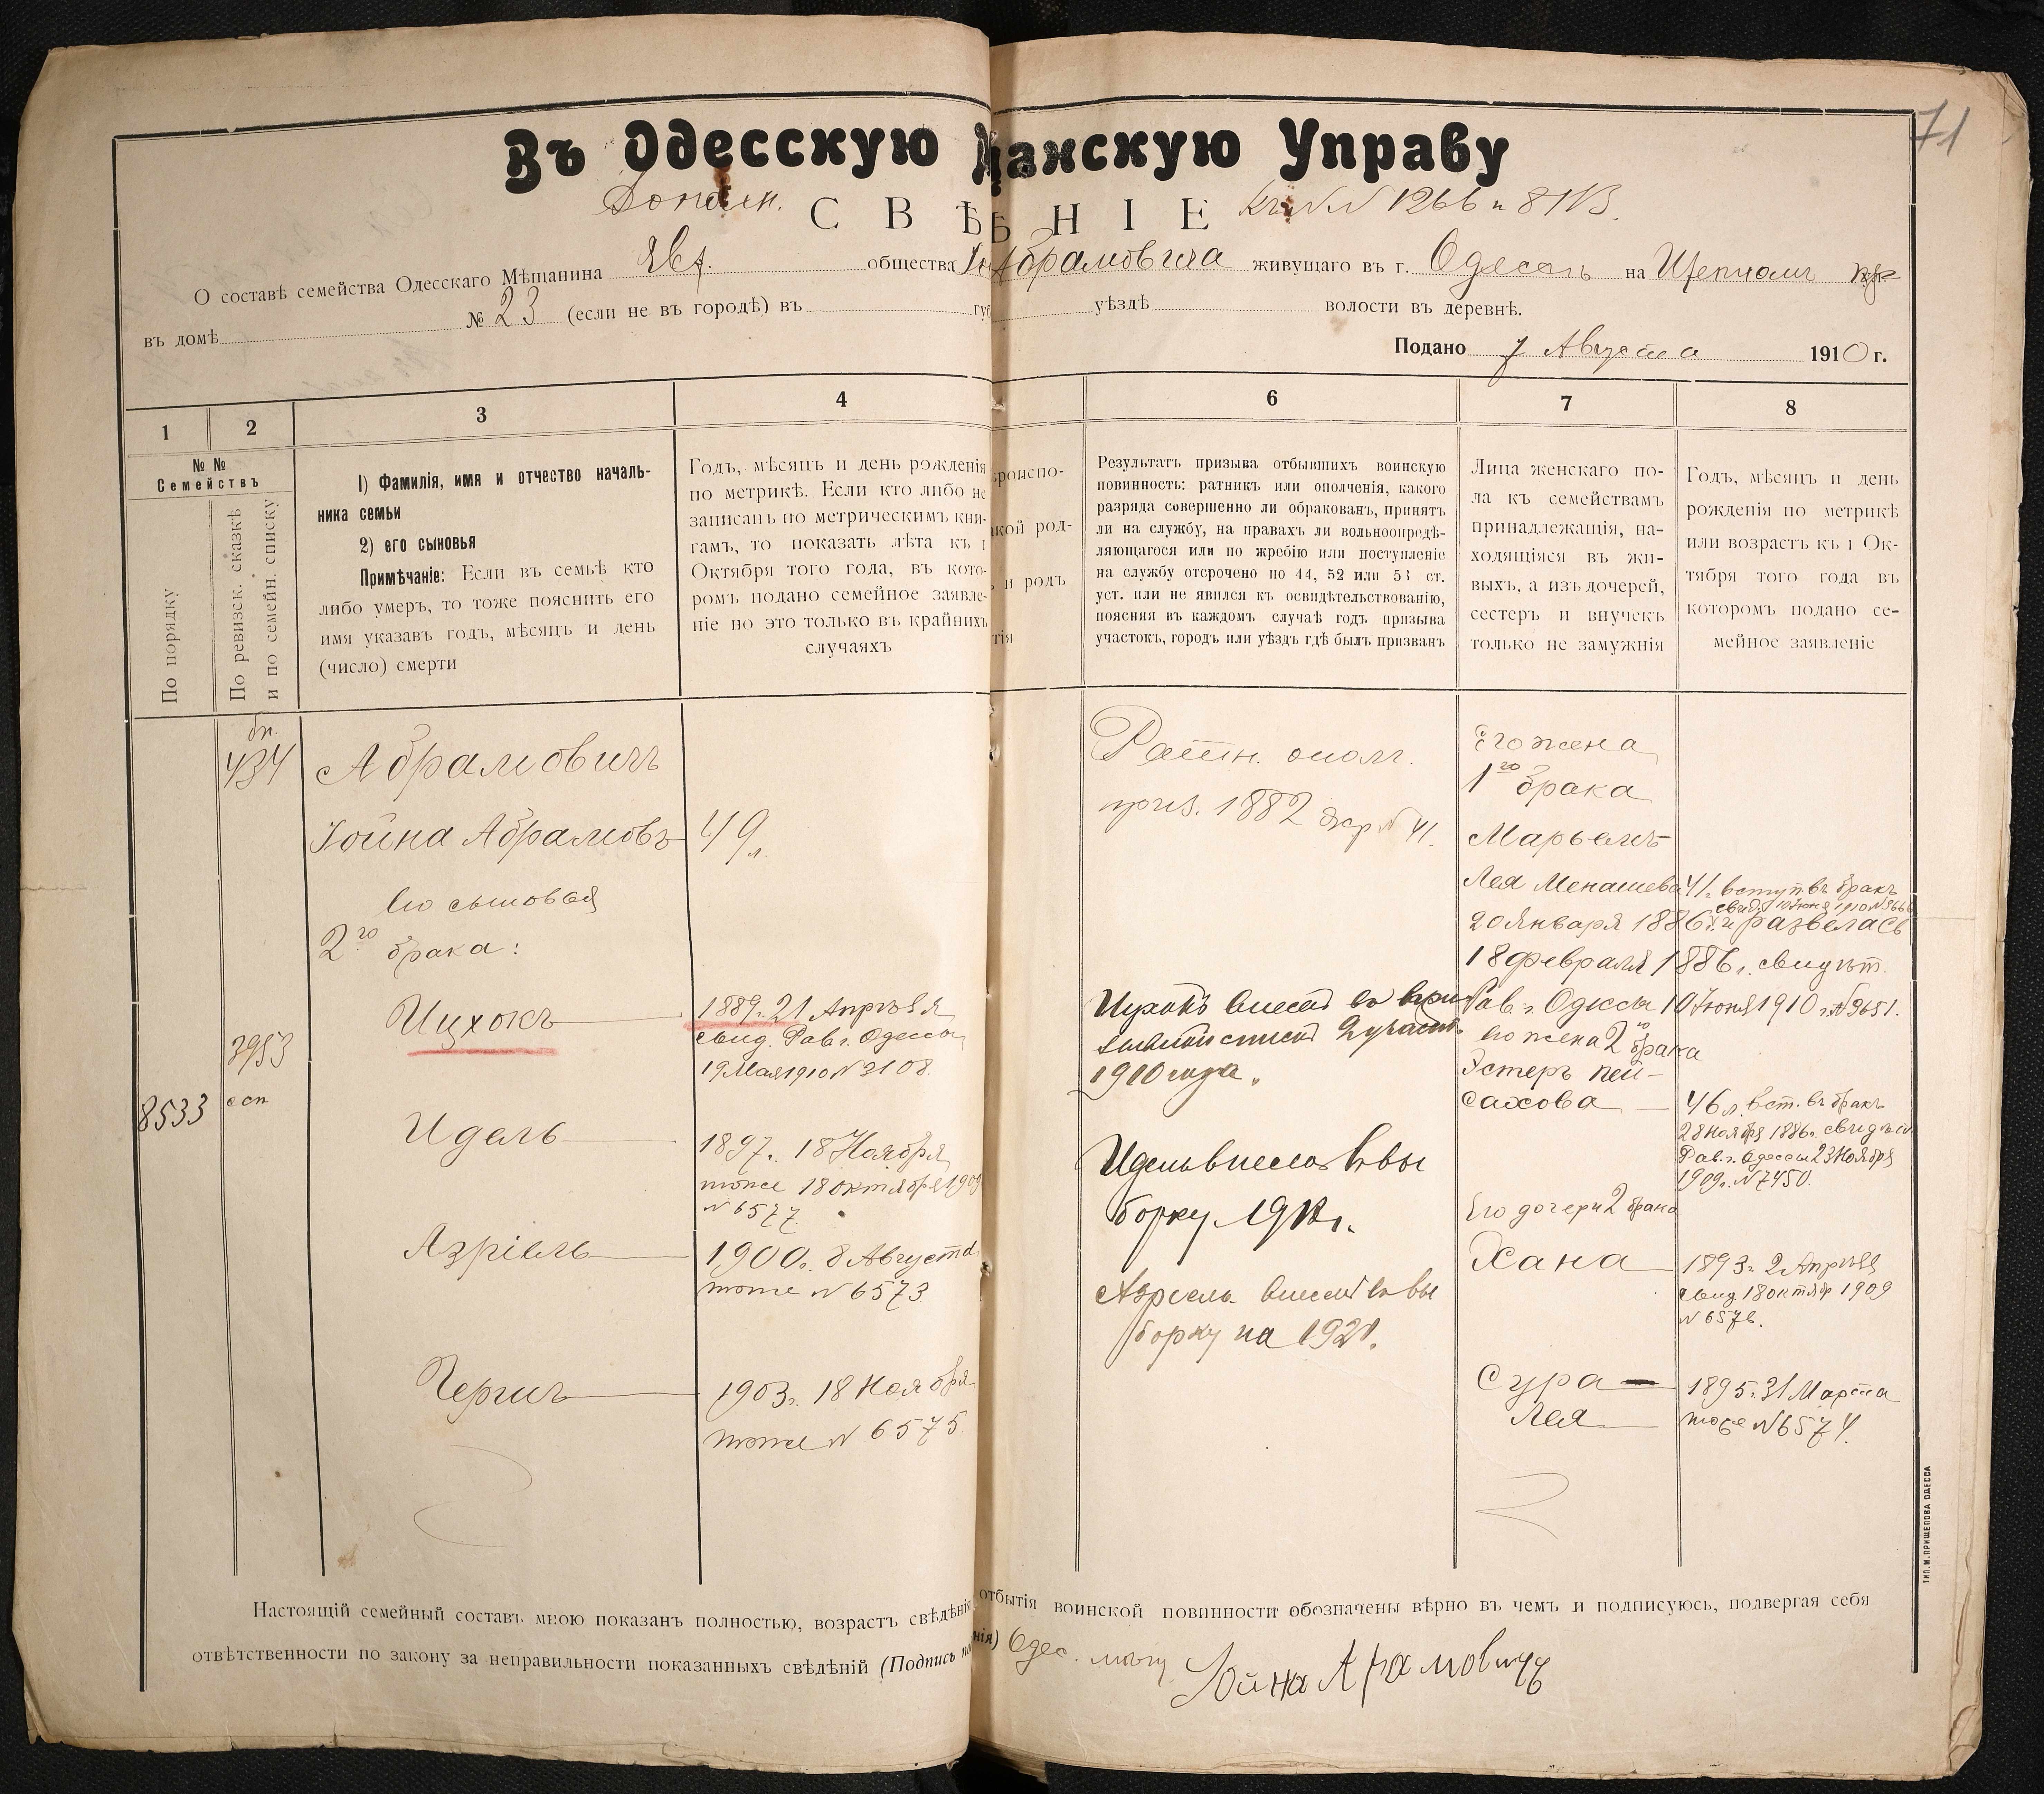 71
Въ Одесскую щанскую Управу
Дополн. СВѢ НІЕ Къ №№ 1266 и 8113.
О составѣ семейства Одесскаго Мѣщанина Евр. общества Абрамовича живущаго въ г. Одессѣ на Щепномъ
въ домѣ № 23 (если не въ городѣ) въ губ уѣздѣ волости въ деревнѣ.
Подано 7 Августа 1910 г.
1 2 3 4 6 7 8
№ №
Семействъ
По порядку
По ревизск. сказкѣ
и по семейн. списку
1) Фамилія, имя и отчество началь-
ника семьи
2) его сыновья
Примѣчаніе: Если въ семьѣ кто
либо умеръ, то тоже пояснить его
имя указавъ годъ, мѣсяцъ и день
(число) смерти
Годъ, мѣсяцъ и день рожденія
по метрикѣ. Если кто либо не
записанъ по метрическимъ кни-
гамъ, то показать лѣта къ 1
Октября того года, въ кото-
ромъ подано семейное заявле-
ніе но это только въ крайнихъ
случаяхъ
роиспо-
кой род-
и родъ
тія
Результатъ призыва отбывшихъ воинскую
повинность: ратникъ или ополченія, какого
разряда совершенно ли обракованъ, принятъ
ли на службу, на правахъ ли вольноопредѣ-
ляющагося или по жребію или поступленіе
на службу отсрочено по 44, 52 или 53 ст.
уст. или не явился къ освидѣтельствованію,
поясняя въ каждомъ случаѣ годъ призыва
участокъ, городъ или уѣздъ гдѣ былъ призванъ
Лица женскаго по-
ла къ семействамъ
принадлежащія, на-
ходящіяся въ жи-
выхъ, а изъ дочерей,
сестеръ и внучекъ
только не замужнія
Годъ, мѣсяцъ и день
рожденія по метрикѣ
или возрастъ къ 1 Ок-
тября того года въ
которомъ подано се-
мейное заявленіе
434
Абрамовичъ
Іойна Абрамовъ 49 л.
его сыновья
2го брака:
3953
Ицхокъ 1889 г. 21 Апрѣля
свид. Рав. г. Одессы
19 Мая 1910 № 2108.
8533
Идель 1897 г. 18 Ноября
тоже 18 октября 1909
№ 6577
Азріель 1900 г. 8 Августа
тоже № 6573
Герши 1903 г. 18 Ноября
тоже № 6575
Ратн. ополч.
приз. 1882 жр. № 41.
Ицхокъ внесенъ въ
1910 года.
Идель внесенъ въ вы
борку 1918 г.
Азріель внесенъ въ вы
борку на 1921.
Его жена
1го брака
Марьемъ-
Лея Менашева 41 г. вступ. въ бракъ
свид. 10 Іюня 1910 № 3666
20 Января 1886 г. и развелась
18 февраля 1886 г. свидѣт.
Рав. г. Одессы 10 Іюня 1910 г. № 3651.
его жена 2го брака
Эстеръ Пей-
сахова 46 л. вст. въ бракъ
28 Ноября 1886 г. свидѣт.
Рав. г. Одессы 23 Ноября
1909 г. № 7450.
Его дочери 2 брака
Хана 1893 г. 2 Апрѣля
свид 18 октяб 1909
№ 6576.
Сура- 1895 г. 31 Марта
Лея тоже № 6574.
Настоящій семейный составъ мною показанъ полностью, возрастъ свѣдѣнія отбытія воинской повинности обозначены вѣрно въ чемъ и подписуюсь, подвергая себя
отвѣтственности по закону за неправильности показанныхъ свѣдѣній (Подпись нія) Одес. мѣщ Іойна Абрамовичъ
ТИП. М. ПРИЩЕПОВА ОДЕССА